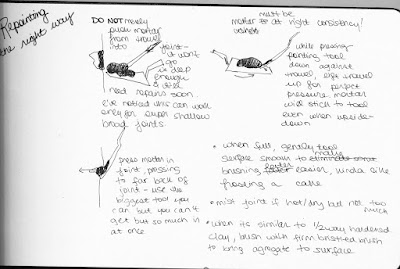 Repointing
the right way
DO NOT merely
push mortar
from trowel
into
joint -
it won't
go
deep
enough
& will
need repairs soon.
I've noticed this can work
only for super shallow
broad joints
must be
mortar to at right consistency/
wetness
while pressing
pointing tool
down against
trowel, lift trowel
up for perfect
pressure. mortar
will stick to tool
even when upside-
down
press mortar in
joint, pressing
to far back of
joint - use the
biggest tool you
can but you can't
get but so much in
at once
• when full, gently tool
surface smooth to make
brushing faster easier, kinda like
frosting a cake
• mist joint if hot/dry but not too
much
• when its similar to 1/2way hardened
clay, brush with firm bristled brush
to bring agregate to surface